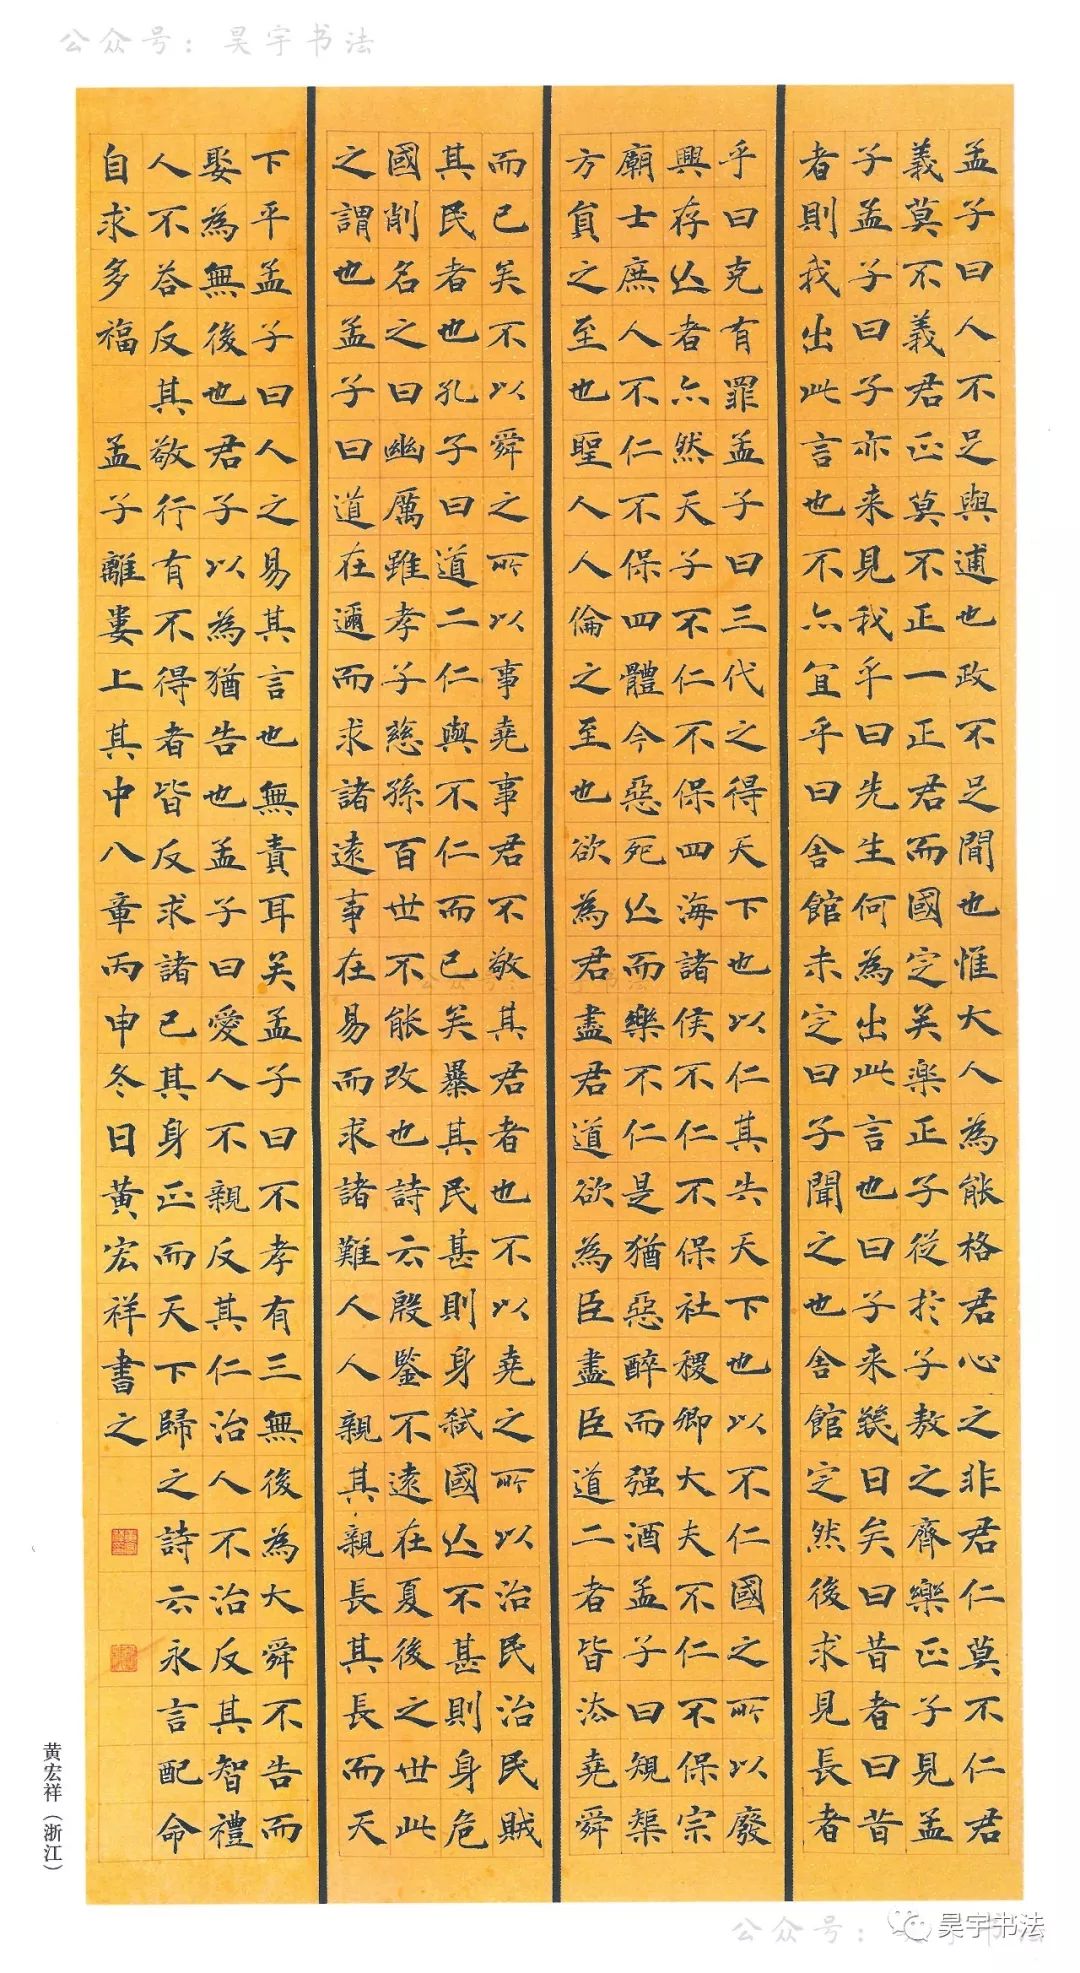 公众号：昊宇书法
孟子曰人不足與適也政不足閒也惟大人為能格君心之非君仁莫不仁君
義莫不義君正莫不正一正君而國定矣樂正子從於子敖之齊樂正子見孟
子孟子曰子亦来見我乎曰先生何為出此言也曰子来幾日矣曰昔者曰昔
者則我出此言也不亦宜乎曰舍館未定曰子聞之也舍館定然後求見長者
乎曰克有罪孟子曰三代之得天下也以仁其失天下也以不仁國之所以廢
興存亡者亦然天子不仁不保四海諸侯不仁不保社稷卿大夫不仁不保宗
廟士庶人不仁不保四體今惡死亡而樂不仁是猶惡醉而强酒孟子曰規榘
方員之至也聖人人倫之至也欲為君盡君道欲為臣盡臣道二者皆法堯舜
而已矣不以舜之所以事堯事君不敬其君者也不以堯之所以治民治民賊
其民者也孔子曰道二仁與不仁而已矣暴其民甚則身弑國亡不甚則身危
國削名之曰幽厲雖孝子慈孫百世不能改也詩云殷鑒不遠在夏後之世此
之謂也孟子曰道在邇而求諸遠事在易而求諸難人人親其親長其長而天
下平孟子曰人之易其言也無責耳矣孟子曰不孝有三無後為大舜不告而
娶為無後也君子以為猶告也孟子曰愛人不親反其仁治人不治反其智禮
人不答反其敬行有不得者皆反求諸己其身正而天下歸之詩云永言配命
自求多福 孟子離婁上其中八章丙申冬日黄宏祥書之
黄宏祥（浙江）
昊宇书法